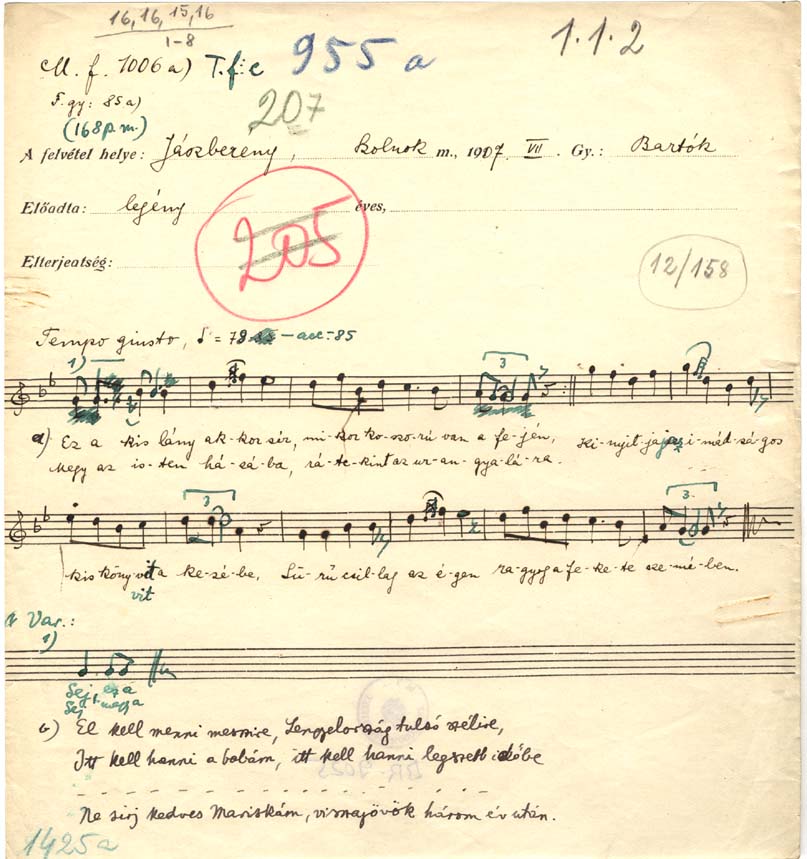 16, 16, 15, 16
1-8
1.1.2
M. f. 1006a) T.f:c 955 a
F. gy: 85a) 207
(168 p. m.)
A felvétel helye: Jászberény, Szolnok m., 1907. VII. Gy.: Bartók
Előadta: legény éves,
205
Elterjeatség:
12/158
Tempo giusto, = 78 - acc. 85
1)
3
a) Ez a kis lány ak-kor sér, mi-kor ko-szo-rú van a fe-jén, Ki-nyit-ja az i-mád-sá-gos
Megy az is-ten há-zá-ba, rá-te-kint az ur an-gya-lá-ra.
3 3
kis köny-vit a ke-zé-be, Sű-rű csil-lag az é-gen ra-gyog a fe-ke-te sze-mé-ben.
vit
Var.:
1)
Sej, ez a
Sej, megy a
b) El kell menni messzire, Lengyelország tulsó szélire,
Itt kell hanni a babám, itt kell hanni legszebb időbe
Ne sirj kedves Mariskám, visszajövök három év után.
1425a